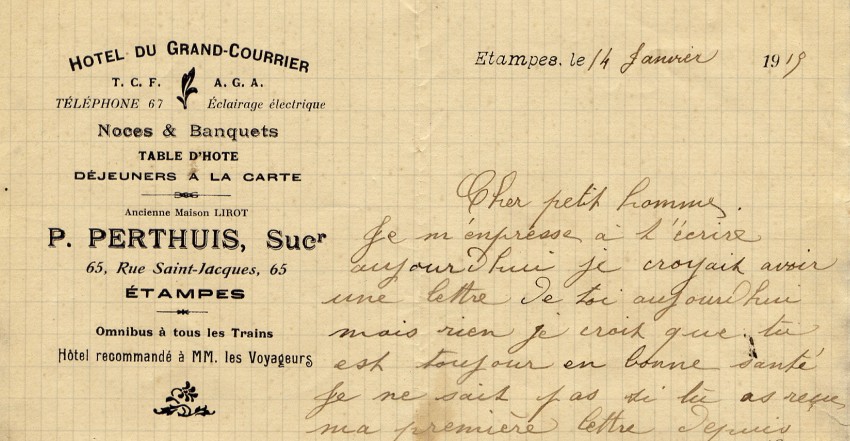 HOTEL DU GRAND-COURRIER
T. C. F. A. G. A.
TÉLÉPHONE 67 Éclairage électrique
Noces & Banquets
TABLE D'HOTE
DÉJEUNERS A LA CARTE
Ancienne Maison LIROT
P. PERTHUIS, Sucr
65, Rue Saint-Jacques, 65
ÉTAMPES
Omnibus à tous les Trains
Hôtel recommandé à MM. les Voyageurs
Etampes, le 14 Janvier 1915
Cher petit homme,
Je m'enpresse à t'écrire
aujourd'hui je croyait avoir
une lettre de toi aujourd'hui
mais rien je croit que tu
est toujour en bonne santé
Je ne sait pas si tu as reçue
ma première lettre depuis